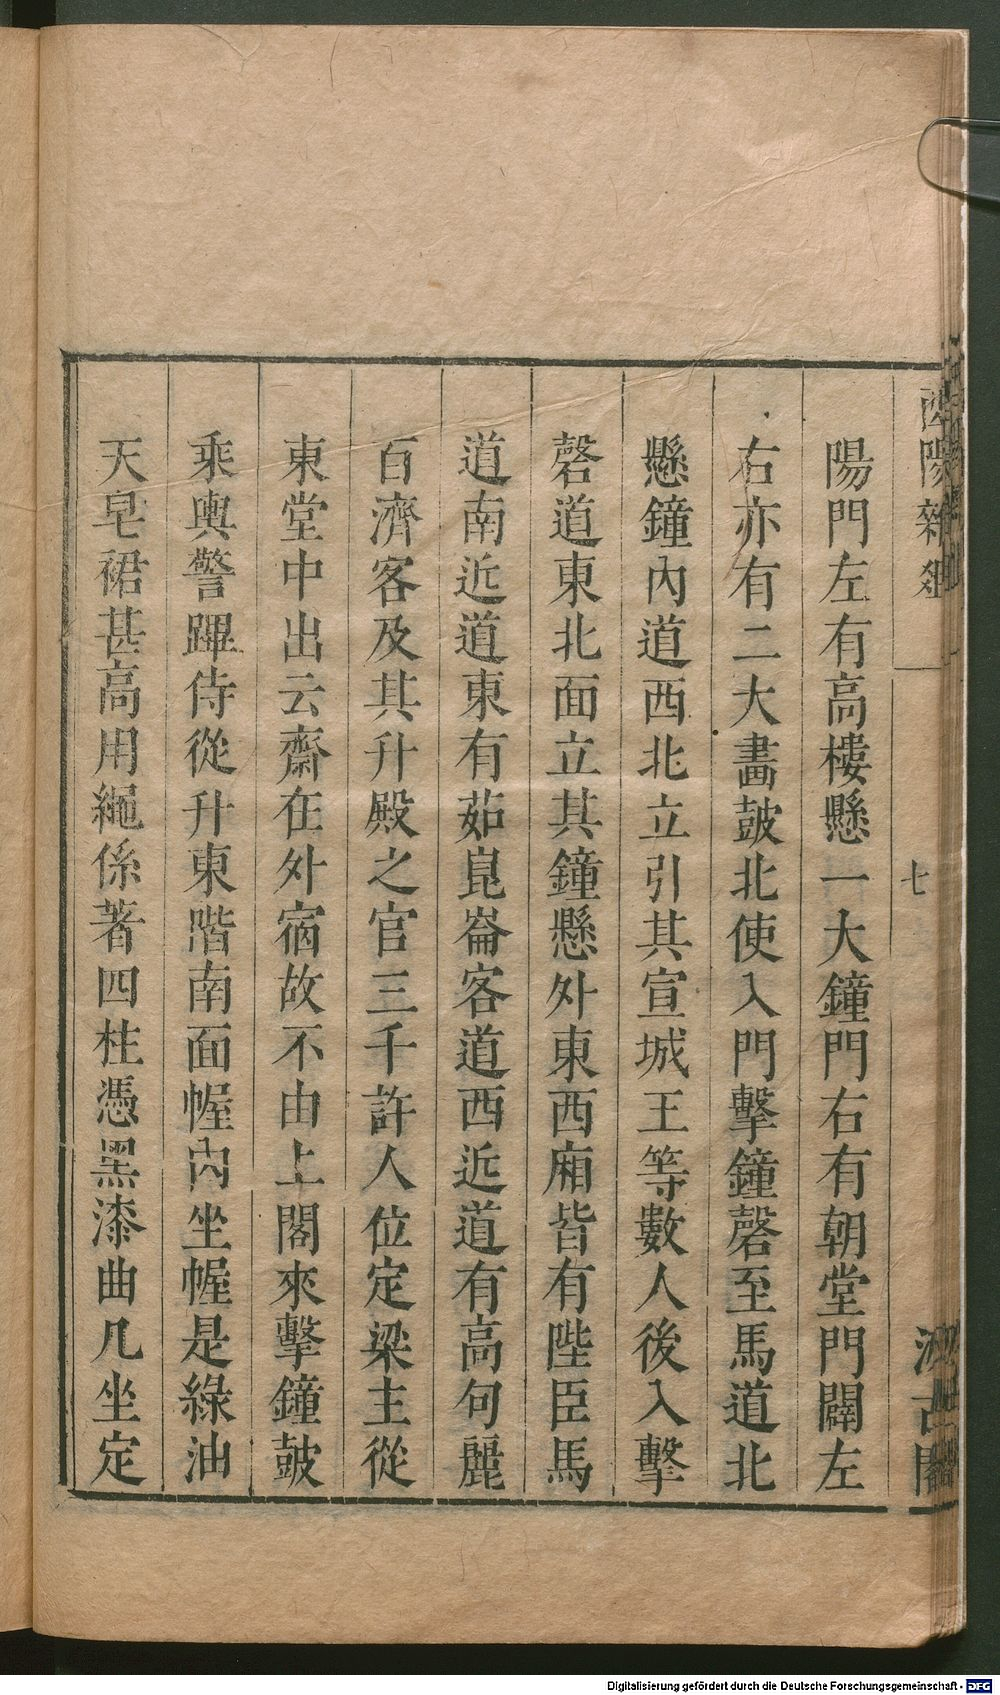 酉陽雜俎
七
汲古閣
陽門左有高樓懸一大鐘門右有朝堂門闢左
右亦有二大畫皷北使入門擊鐘磬至馬道北
懸鐘內道西北立引其宣城王等數人後入擊
磬道東北面立其鐘懸外東西廂皆有陛臣馬
道南近道東有茹崑崙客道西近道有高句麗
百濟客及其升殿之官三千許人位定梁主從
東堂中出云齋在外宿故不由上閣來擊鐘皷
乘輿警蹕侍從升東階南面幄內坐幄是綠油
天皂裙甚高用繩係著四柱憑黑漆曲几坐定
Digitalisierung gefördert durch die Deutsche Forschungsgemeinschaft - DFG